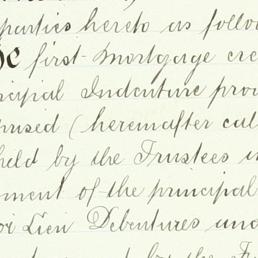 parties hereto as follow
first mortgage cre
cipal Indenture pro
prised (hereafter cal
held by the Trustees i
ment of the principal
or Lien Debentures und
by the